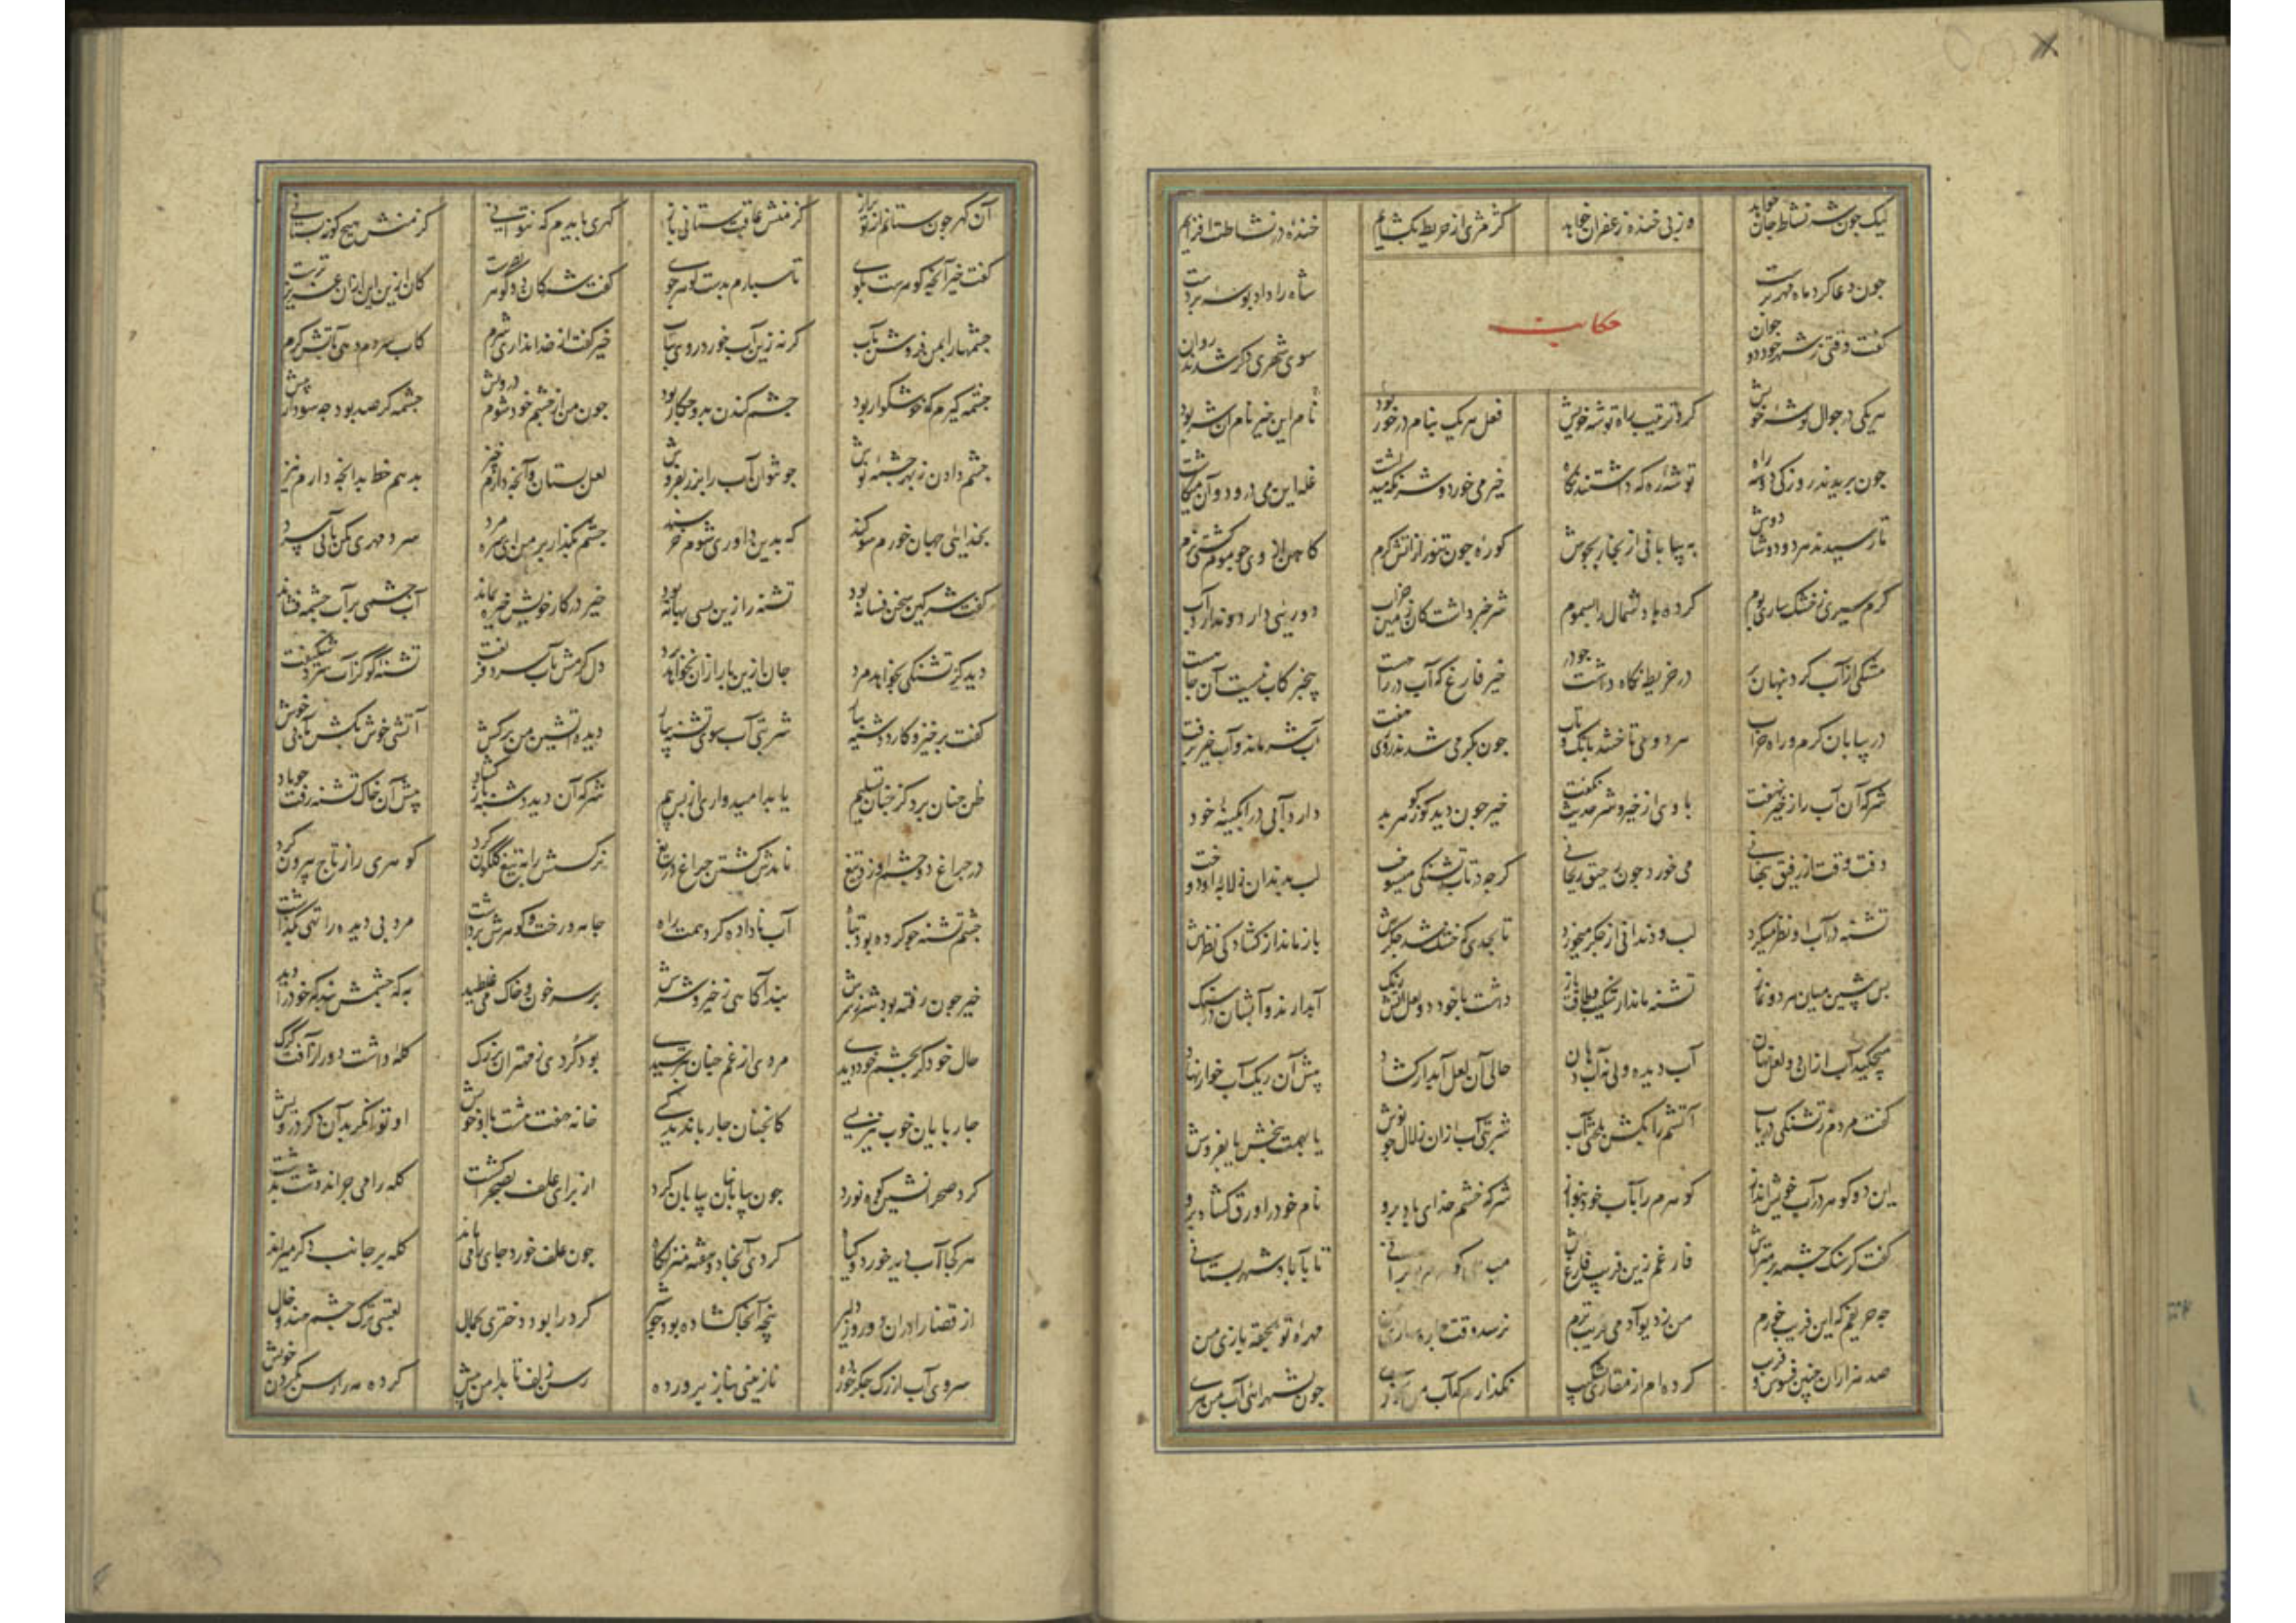 لیک چون شه نشاط جان خواهد وز پی خنده زعفران خواهد کژ مژی از خریطه بگشایم خنده در نشاطت افزایم
چون دعا کرد ماه مهر پرست شاه را داد بوسه بر دست
حکایت
گفت وقتی ز شهر خود دو جوان سوی شهری دکر شدند روان
هر یکی در جوال کوشه خویش کرد ترتیب راه توشه خویش فعل هر یک بنام در خور بود نام این خیر نام ان شر بود
چون بریدند روزکی دو سه راه توشه ره که داشتند نکاه خیر می خورد و شر نکه میداشت غله این می درود و آن میکاشت
تا رسیدند هر دو دوشادوش به بیابانی از بخار بجوش کوره چون تنور از آتش کرم کاهن از وی چو موم کشتی نرم
کرم سیری ز خشک ساری بوم کرده باد شمال را سموم شر خبر داشت کان زمین خراب دوریی دارد و ندارد آب
مشکی از آب کرد پنهان پر در خریطه نکاه داشت چو در خیر فارغ که آب در راهست بیخبر کاب نیست آن چاهست
در بیابان کرم و راه خراب می دواندند تک و تاب چون بکرمی شدند روزی هفت آب شر ماند و آب خیر برفت
شر که آن آب را ز خیر نهفت با وی از خیر و شر حدیث نکفت خیر چون دید کو ز کوهر بد دارد آبی در آبکینه خود
وقت وقت از رفیق پنهانی می خورد چون رحیق ریحانی کرچه در تاب تشنکی میسوخت لب بدندان ز لابه او دوخت
تشنه در آب او نظر میکرد لب و دندانی از جکر میخورد تا بجدی که خشک شد جکرش باز ماند از کشادکی نظرش
داشت با خود دو لعل آتش رنک آبدار و آبشان در سنک
میچکید آب از آن دو لعل نهان آب دیده ولی نه آب دهان حالی آن لعل آبدار کشاد پیش آن ریک آب خوار نهاد
کفت مردم ز تشنکی دریاب آتشم را بکش بلختی آب شربتی آب از آن زلال چو نوش یا بهمت ببخش یا بفروش
این دو کوهر در آب خویش انداز کوهرم را بآب خود بنواز شر که خشم خدای باد برو نام خود را ورق کشاد برو
کفت کز سنک چشمه بر متراش فارغم زین فریب فارغ باش تا بآباد شهر بستانی
چه حریفم که این فریب خورم من ز دیو آدمی فریب ترم نرسد وقت چاره سازی من مهره تو بحقه بازی من
صد هزاران چنین فسوس و فریب کرده ام از مقامری بشکیب نکذارم که آب من چون بشهر آئی آب من ببری
آن کهر چون ستانم از تو براز کز منش عاقبت ستانی باز کهری بایدم که نتوانی کز منش هیچ کونه بستانی
کفت خیر آنچه کوهرست بکوی تا سپارم بدست کوهرجوی کفت شر کان دو کوهر بصرست کان ازین این از آن عزیزترست
چشمها را بمن فروش بآب کرنه زین آب خور رو بتاب خیر کفت از خدا نداری شرم کاب سردم دهی بآتش کرم
چشمه کیرم که خوشکوار بود چشم کندن بدو چکار بود چون من از چشم خود شوم درویش چشمه کر صد بود چه سود از پیش
چشم دادن ز بهر چشمه نوش چون توان آب را بزر بفروش لعل بستان و آنچه دارم چیز بدهم خط بدانچه دارم نیز
بخدای جهان خورم سوکند که بدین داوری شوم خرسند چشم بکذار بر من ای سره مرد سرد مهری مکن بآبی سرد
کفت شر کین سخن فسانه بود تشنه را زین بسی بهانه بود خیر در کار خویش خیره بماند آب چشمی بر آب چشمه فشاند
دید کز تشنکی بخواهد مرد جان ازین جا نخواهد برد دل کرمش بآب سرد فریفت تشنه کو کز آب سرد شکیفت
کفت برخیز و کارد و تشنه بیار شربتی آب سوی تشنه بیار دیده آتشین من برکش آتشی خوش بکش بآبی خوش
ظن چنان برد کز چنان تسلیم یابد امیدواری از بیم شر که آن دید دشنه باز کشاد پیش آن خاک تشنه رفت چو باد
در چراغ دو چشم او زد تیغ نامدش کشتن چراغ دریغ نرکسش را به تیغ کلکون کرد کوهری را ز تاج بیرون کرد
چشم تشنه چو کرده بود تباه آب ناداده کرد همت راه جامه و رخت و کوهرش برداشت مرد بی دیده را تهی بکذاشت
خیر چون رفته بود شر ز برش نبد آکاهی ز خیر و شرش بر سر خون و خاک می غلطید به که چشمش نبد که خود را دید
حال خود کر بچشم خود دیدی مردی از غم چنان بترسیدی بود کردی ز مهتران بزرک کله داشت دور از آفت کرک
چارپایان خوب نیز بسی کانچنان چارپا ندید کسی خانه هفت هشت با او خویش او توانکر بد آن دکر درویش
کرد صحرا نشین کوه نورد چون بیابانیان بیابان کرد از برای علف بصحرا کشت کله را می چراند دشت بدشت
هر کجا آب دید و خورد و کیا کردی آنجا دو هفته منزلکاه چون علف خورد جای را می ماند کله بر جانب دکر میراند
از قضا را در آن دو روز دلیر پنجه آنجا کشاده بود چو شیر کرد را بود دختری بجمال لعبتی ترک چشم هندو خال
سروی آب از رک جکر خورده نازنینی بناز پرورده رسن زلف تا بدامن بیش کرده مه را رسن بکردن خویش